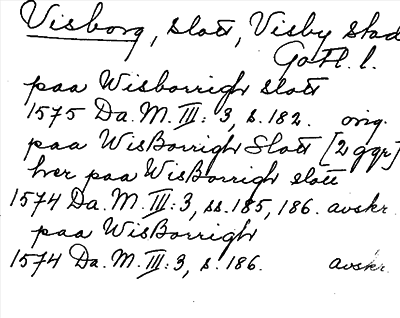 Visborg, slott, Visby stad
Gotl. l.
paa Wisborrigh slott
1575 Da. M. III: 3, s. 182. orig.
paa WisBorrigh Slott [2 ggr]
her paa WisBorrigh slott
1574 Da. M. III: 3, ss. 185, 186. avskr.
paa WisBorrigh
1574 Da. M. III: 3, s. 186. avskr.